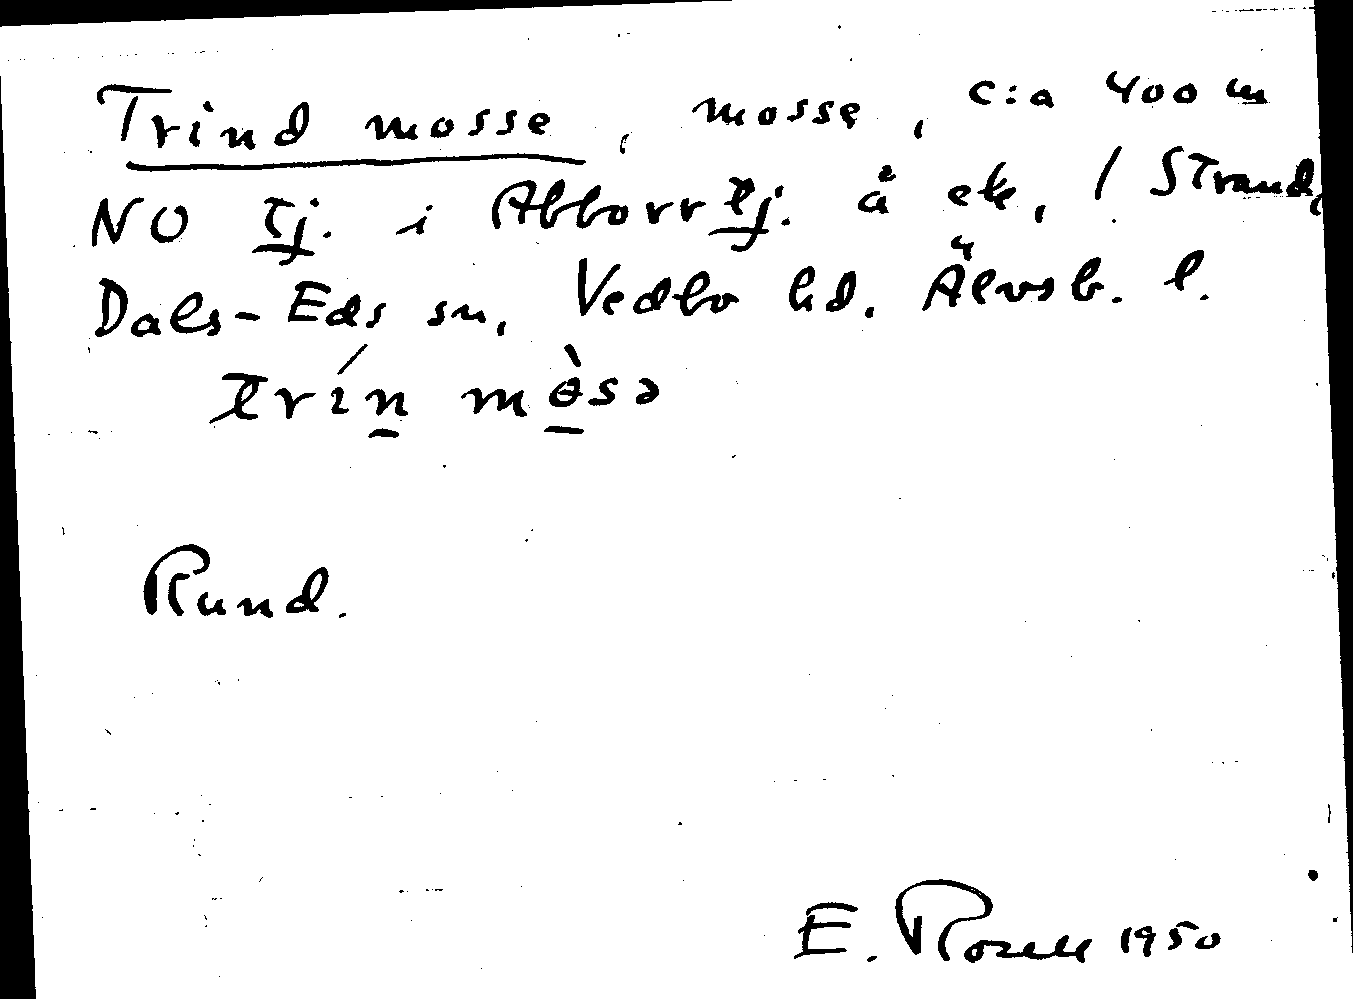 Trind mosse, mosse, c:a 400 m
NO tj. i Abborrtj. å ek, / Strand,
Dals-Eds sn, Vedbo hd. Älvsb. l.
trín mòsə
Rund.
E. Rosell 1950